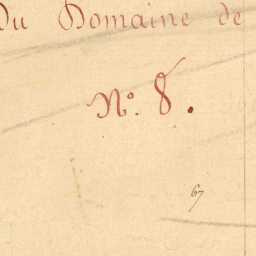 Du Domaine de
N.º 8.
67